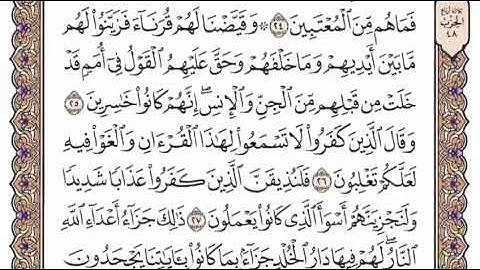 فَمَا هُم مِّنَ الْمُعْتَبِينَ ٢٤ ۞ وَقَيَّضْنَا لَهُمْ قُرَنَاءَ فَزَيَّنُوا۟ لَهُم
مَّا بَيْنَ أَيْدِيهِمْ وَمَا خَلْفَهُمْ وَحَقَّ عَلَيْهِمُ الْقَوْلُ فِىٓ أُمَمٍ قَدْ
خَلَتْ مِن قَبْلِهِم مِّنَ الْجِنِّ وَالْإِنسِ ۖ إِنَّهُمْ كَانُوا۟ خَاسِرِينَ ٢٥
وَقَالَ الَّذِينَ كَفَرُوا۟ لَا تَسْمَعُوا۟ لِهَٰذَا الْقُرْءَانِ وَالْغَوْا۟ فِيهِ
لَعَلَّكُمْ تَغْلِبُونَ ٢٦ فَلَنُذِيقَنَّ الَّذِينَ كَفَرُوا۟ عَذَابًا شَدِيدًا
وَلَنَجْزِيَنَّهُمْ أَسْوَأَ الَّذِى كَانُوا۟ يَعْمَلُونَ ٢٧ ذَٰلِكَ جَزَآءُ أَعْدَآءِ اللَّهِ
النَّارُ ۖ لَهُمْ فِيهَا دَارُ الْخُلْدِ جَزَآءً بِمَا كَانُوا۟ بِـَٔايَٰتِنَا يَجْحَدُونَ
الحزب
٤٨